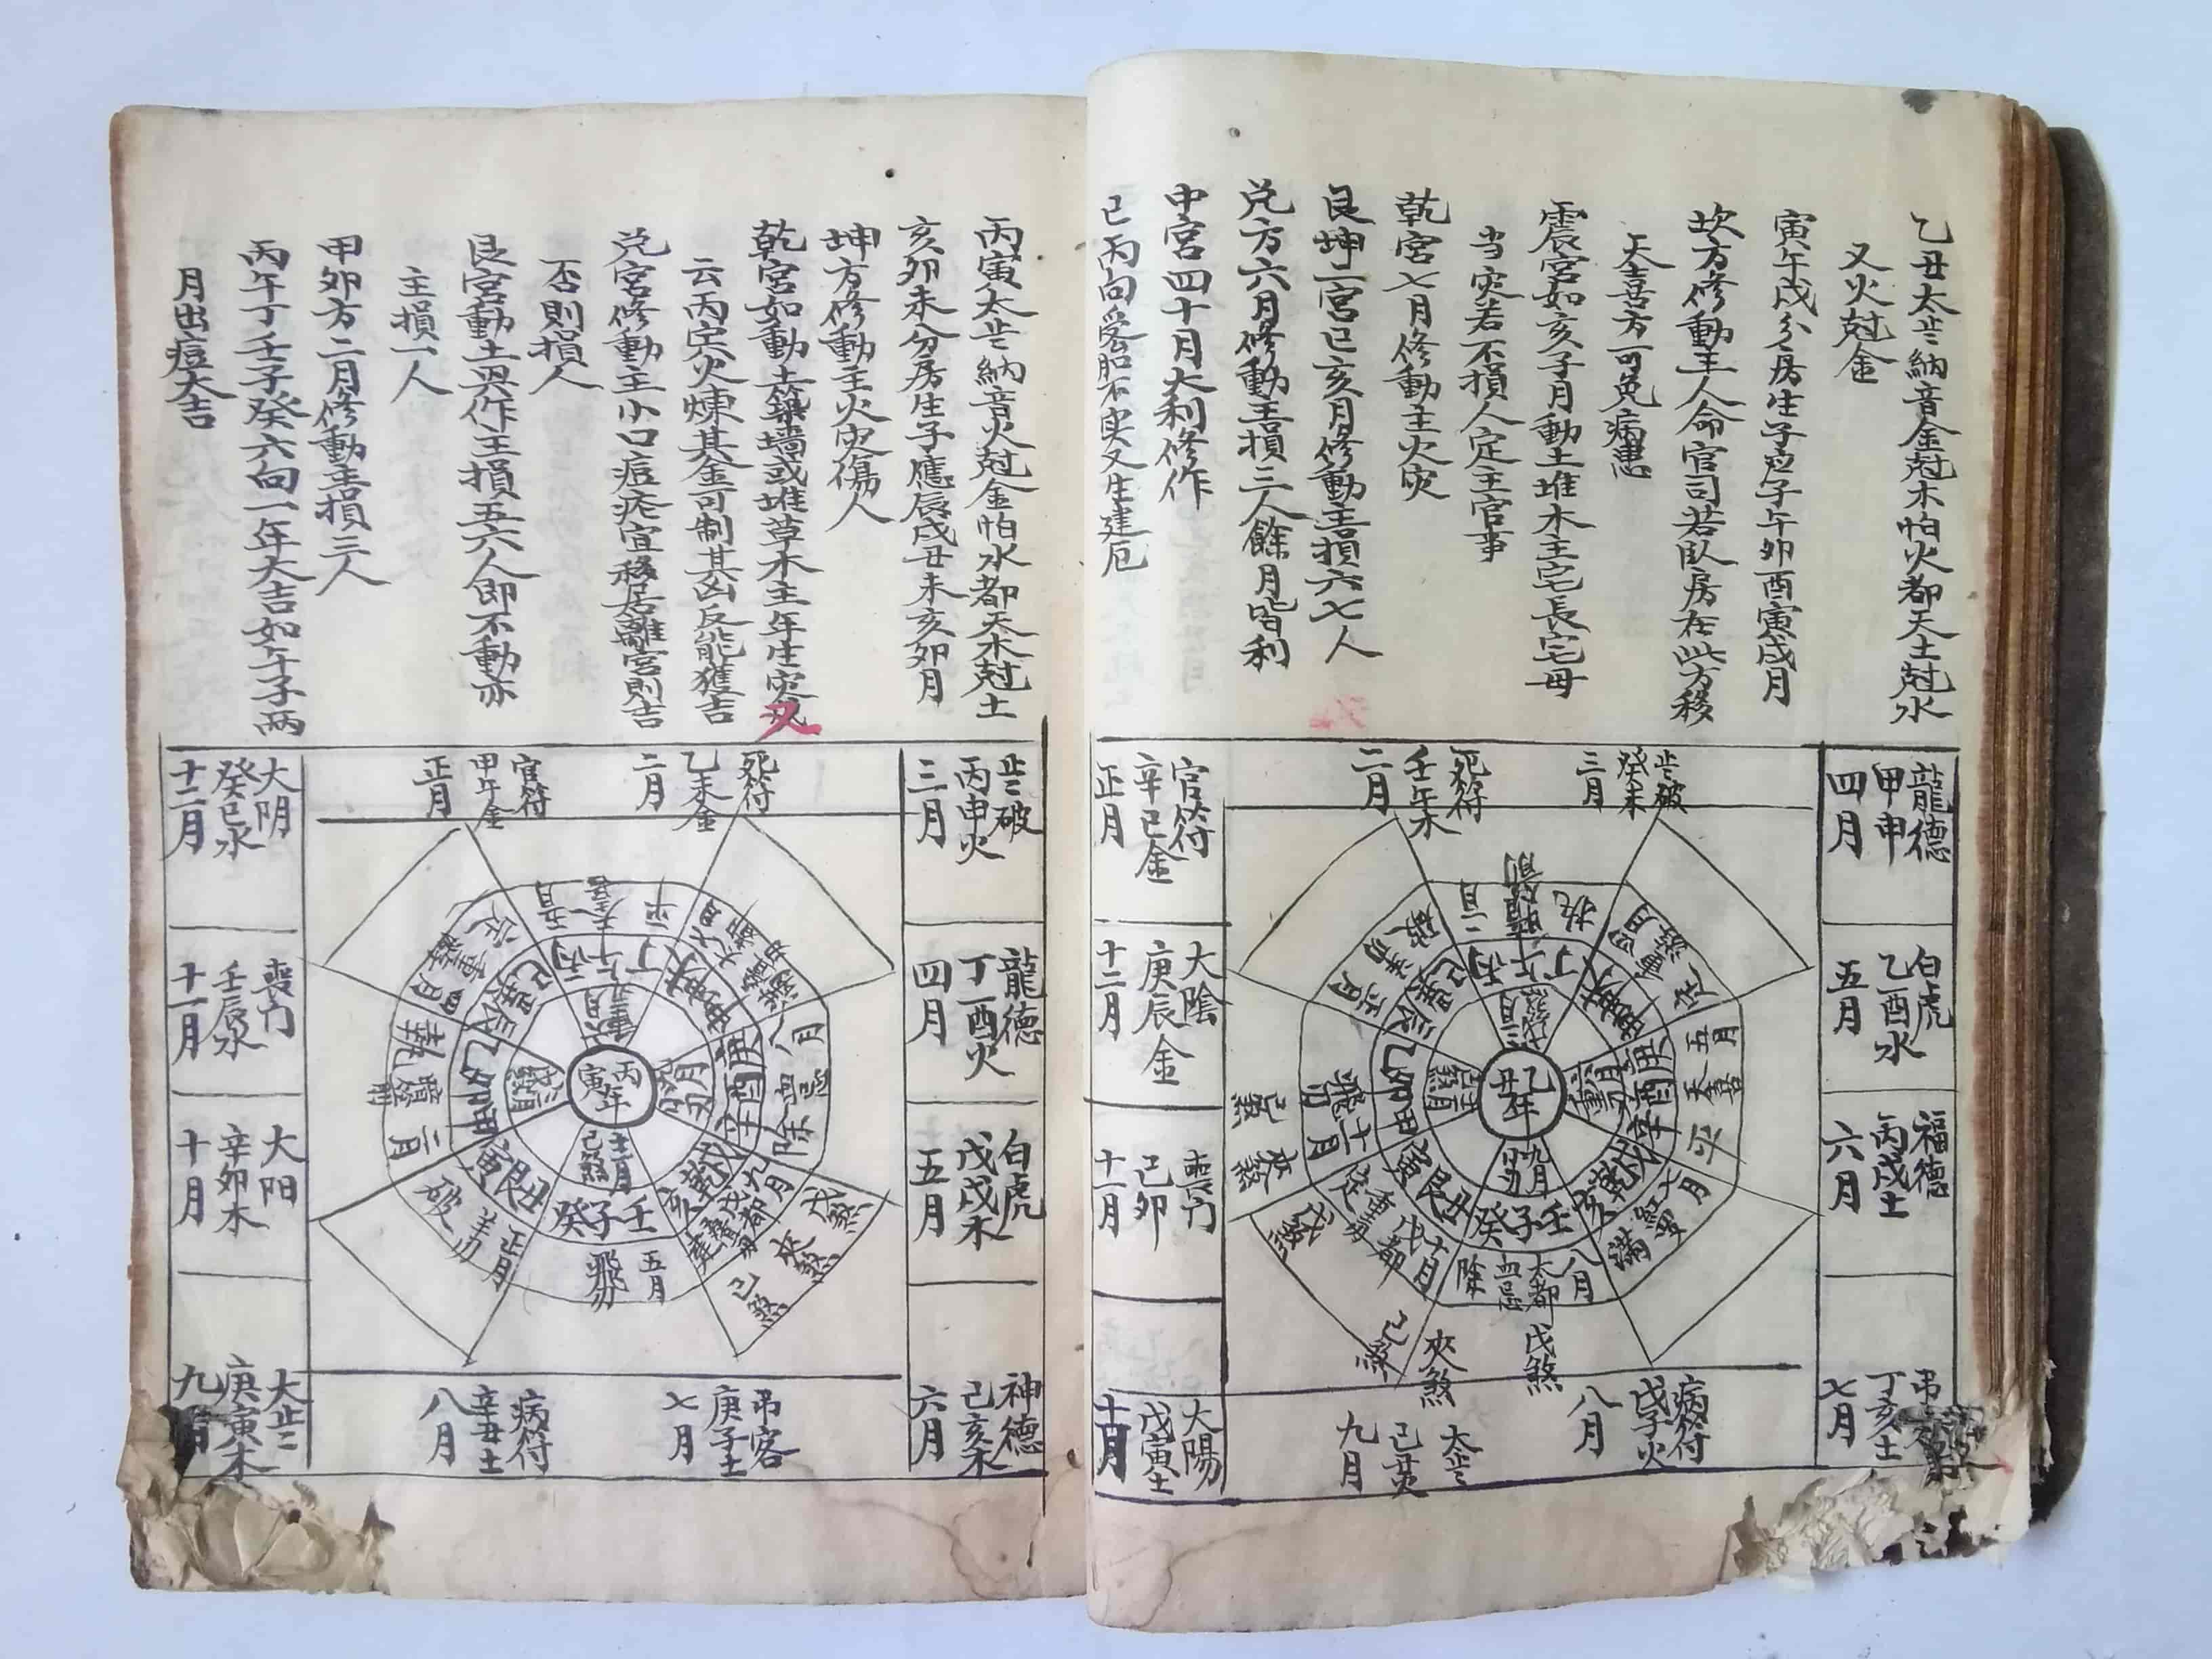 乙丑太岁納音金尅木怕火都天土尅水
又火尅金
寅午戌分房生子应子午卯酉寅戌月
坎方修動主人命官司若臥房在此方移
天喜方可免病患
震宮如亥子月動土堆木主宅長宅母
当灾若不損人定主官事
乾宮七月修動主火灾
艮坤二宮巳亥月修動主損六七人
兑方六月修動主損三人餘月皆利
中宮四十月大利修作
巳丙向受胎不实又生建厄
龍德
甲申
四月
白虎
乙酉水
五月
福德
丙戌土
六月
丁亥土
七月
岁破
癸未
三月
死符
壬午木
二月
官符
辛巳金
正月
大陰
庚辰金
十二月
喪门
己卯
十一月
大陽
戊寅土
十月
太岁
己丑火
九月
病符
戊子火
八月
乙丑年
丁午丙
庚酉辛
壬子癸
丑艮寅
甲卯乙
辰巽巳
戊煞
夾煞
己煞
丙寅太岁納音火尅金怕水都天木尅土
亥卯未分房生子應辰戌丑未亥卯月
坤方修動主火灾傷人
乾宮如動土築墙或堆草木主年生灾又
云丙灾火煉其金可制其凶反能獲吉
兑宮修動主小口痘疹宜移居離宮則吉
否則損人
艮宮動土興作主損五六人即不動亦
主損一人
甲卯方二月修動主損三人
丙午丁壬子癸六向一年大吉如午子两
月出痘大吉
岁破
丙申火
三月
龍德
丁酉火
四月
白虎
戊戌木
五月
神德
己亥木
六月
死符
乙未金
二月
官符
甲午金
正月
大阴
癸巳水
十二月
喪门
壬辰水
十一月
大阳
辛卯木
十月
太岁
庚寅木
九月
病符
辛丑土
八月
吊客
庚子土
七月
丙寅年
丁午丙
庚酉辛
壬子癸
丑艮寅
甲卯乙
辰巽巳
戊煞
夾煞
己煞